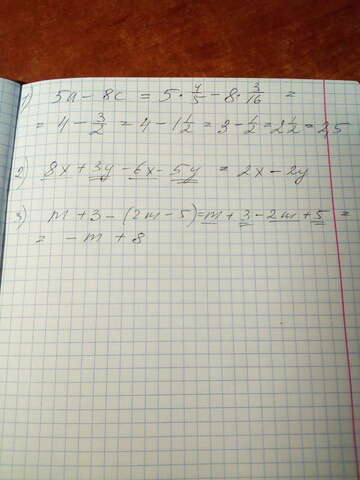 1) 5a - 8c = 5 · 4/5 - 8 · 3/16 =
= 4 - 3/2 = 4 - 1 1/2 = 3 - 1/2 = 2 1/2 = 2,5
2) 8x + 3y - 6x - 5y = 2x - 2y
3) m + 3 - (2m - 5) = m + 3 - 2m + 5 =
= - m + 8